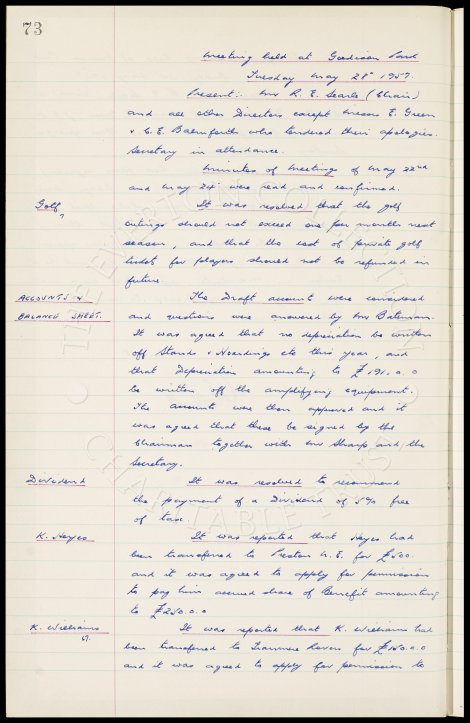 73
Meeting held at Goodison Park
Tuesday May 28th 1957.
Present:- Mr R. E. Searle (Chair)
and all other Directors except Messrs E. Green
& C.E. Balmforth who tendered their apologies.
Secretary in attendance.
Minutes of Meetings of May 22nd
and May 24th were read and confirmed.
Golf, It was resolved that the golf
outings should not exceed one per month next
season, and that the cost of private golf
tickets for players should not be refunded in
future.
ACCOUNTS & The Draft accounts were considered
BALANCE SHEET. and questions were answered by Mr Bateman.
It was agreed that no depreciation be written
off Stands & Hoardings etc this year, and
that Depreciation amounting to £191.0.0
be written off the amplifying equipment.
The accounts were then approved and it
was agreed that these be signed by the
Chairman together with Mr Sharp and the
Secretary.
Dividend It was resolved to recommend
the payment of a Dividend of 5% free
of tax.
K. Heyes It was reported that Heyes had
been transferred to Preston N.E. for £500.
and it was agreed to apply for permission
to pay him accrued share of Benefit amounting
to £250.0.0
K. Williams It was reported that K. Williams had
been transferred to Tranmere Rovers for £150.0.0
and it was agreed to apply for permission to
THE EVERTON COLLECTION
CHARITABLE TRUST